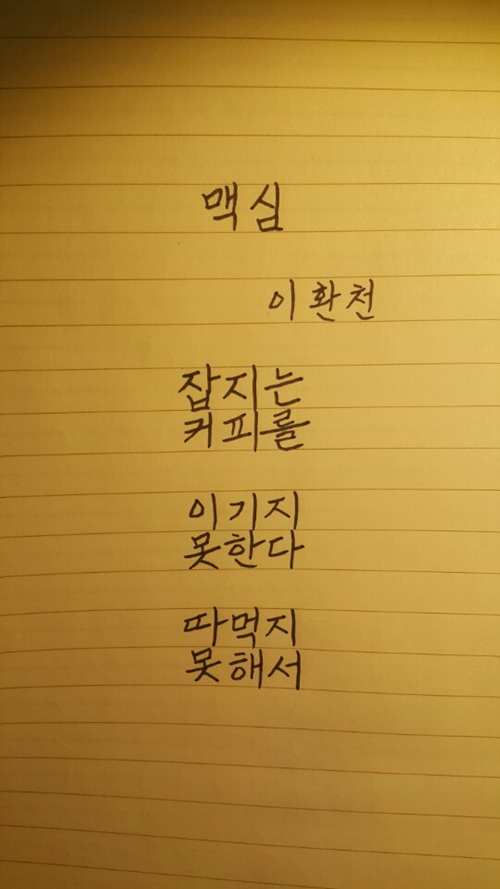 맥심
이환천
잡지는
커피를
이기지
못한다
따먹지
못해서